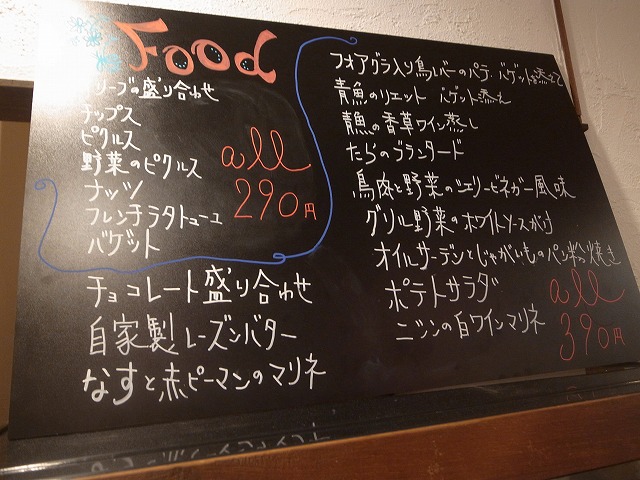 Food
オリーブの盛り合わせ
チップス
ピクルス
野菜のピクルス
ナッツ
フレンチラタトゥーユ
バゲット
all
290円
チョコレート盛り合わせ
自家製レーズンバター
なすと赤ピーマンのマリネ
フォアグラ入り鳥レバーのパテ バゲットを添えて
青魚のリエット バゲット添え
青魚の香草ワイン蒸し
たらのブランタード
鳥肉と野菜のシェリービネガー風味
グリル野菜のホワイトソースがけ
オイルサーデンとじゃがいものパン粉焼き
ポテトサラダ
ニシンの白ワインマリネ
all
390円